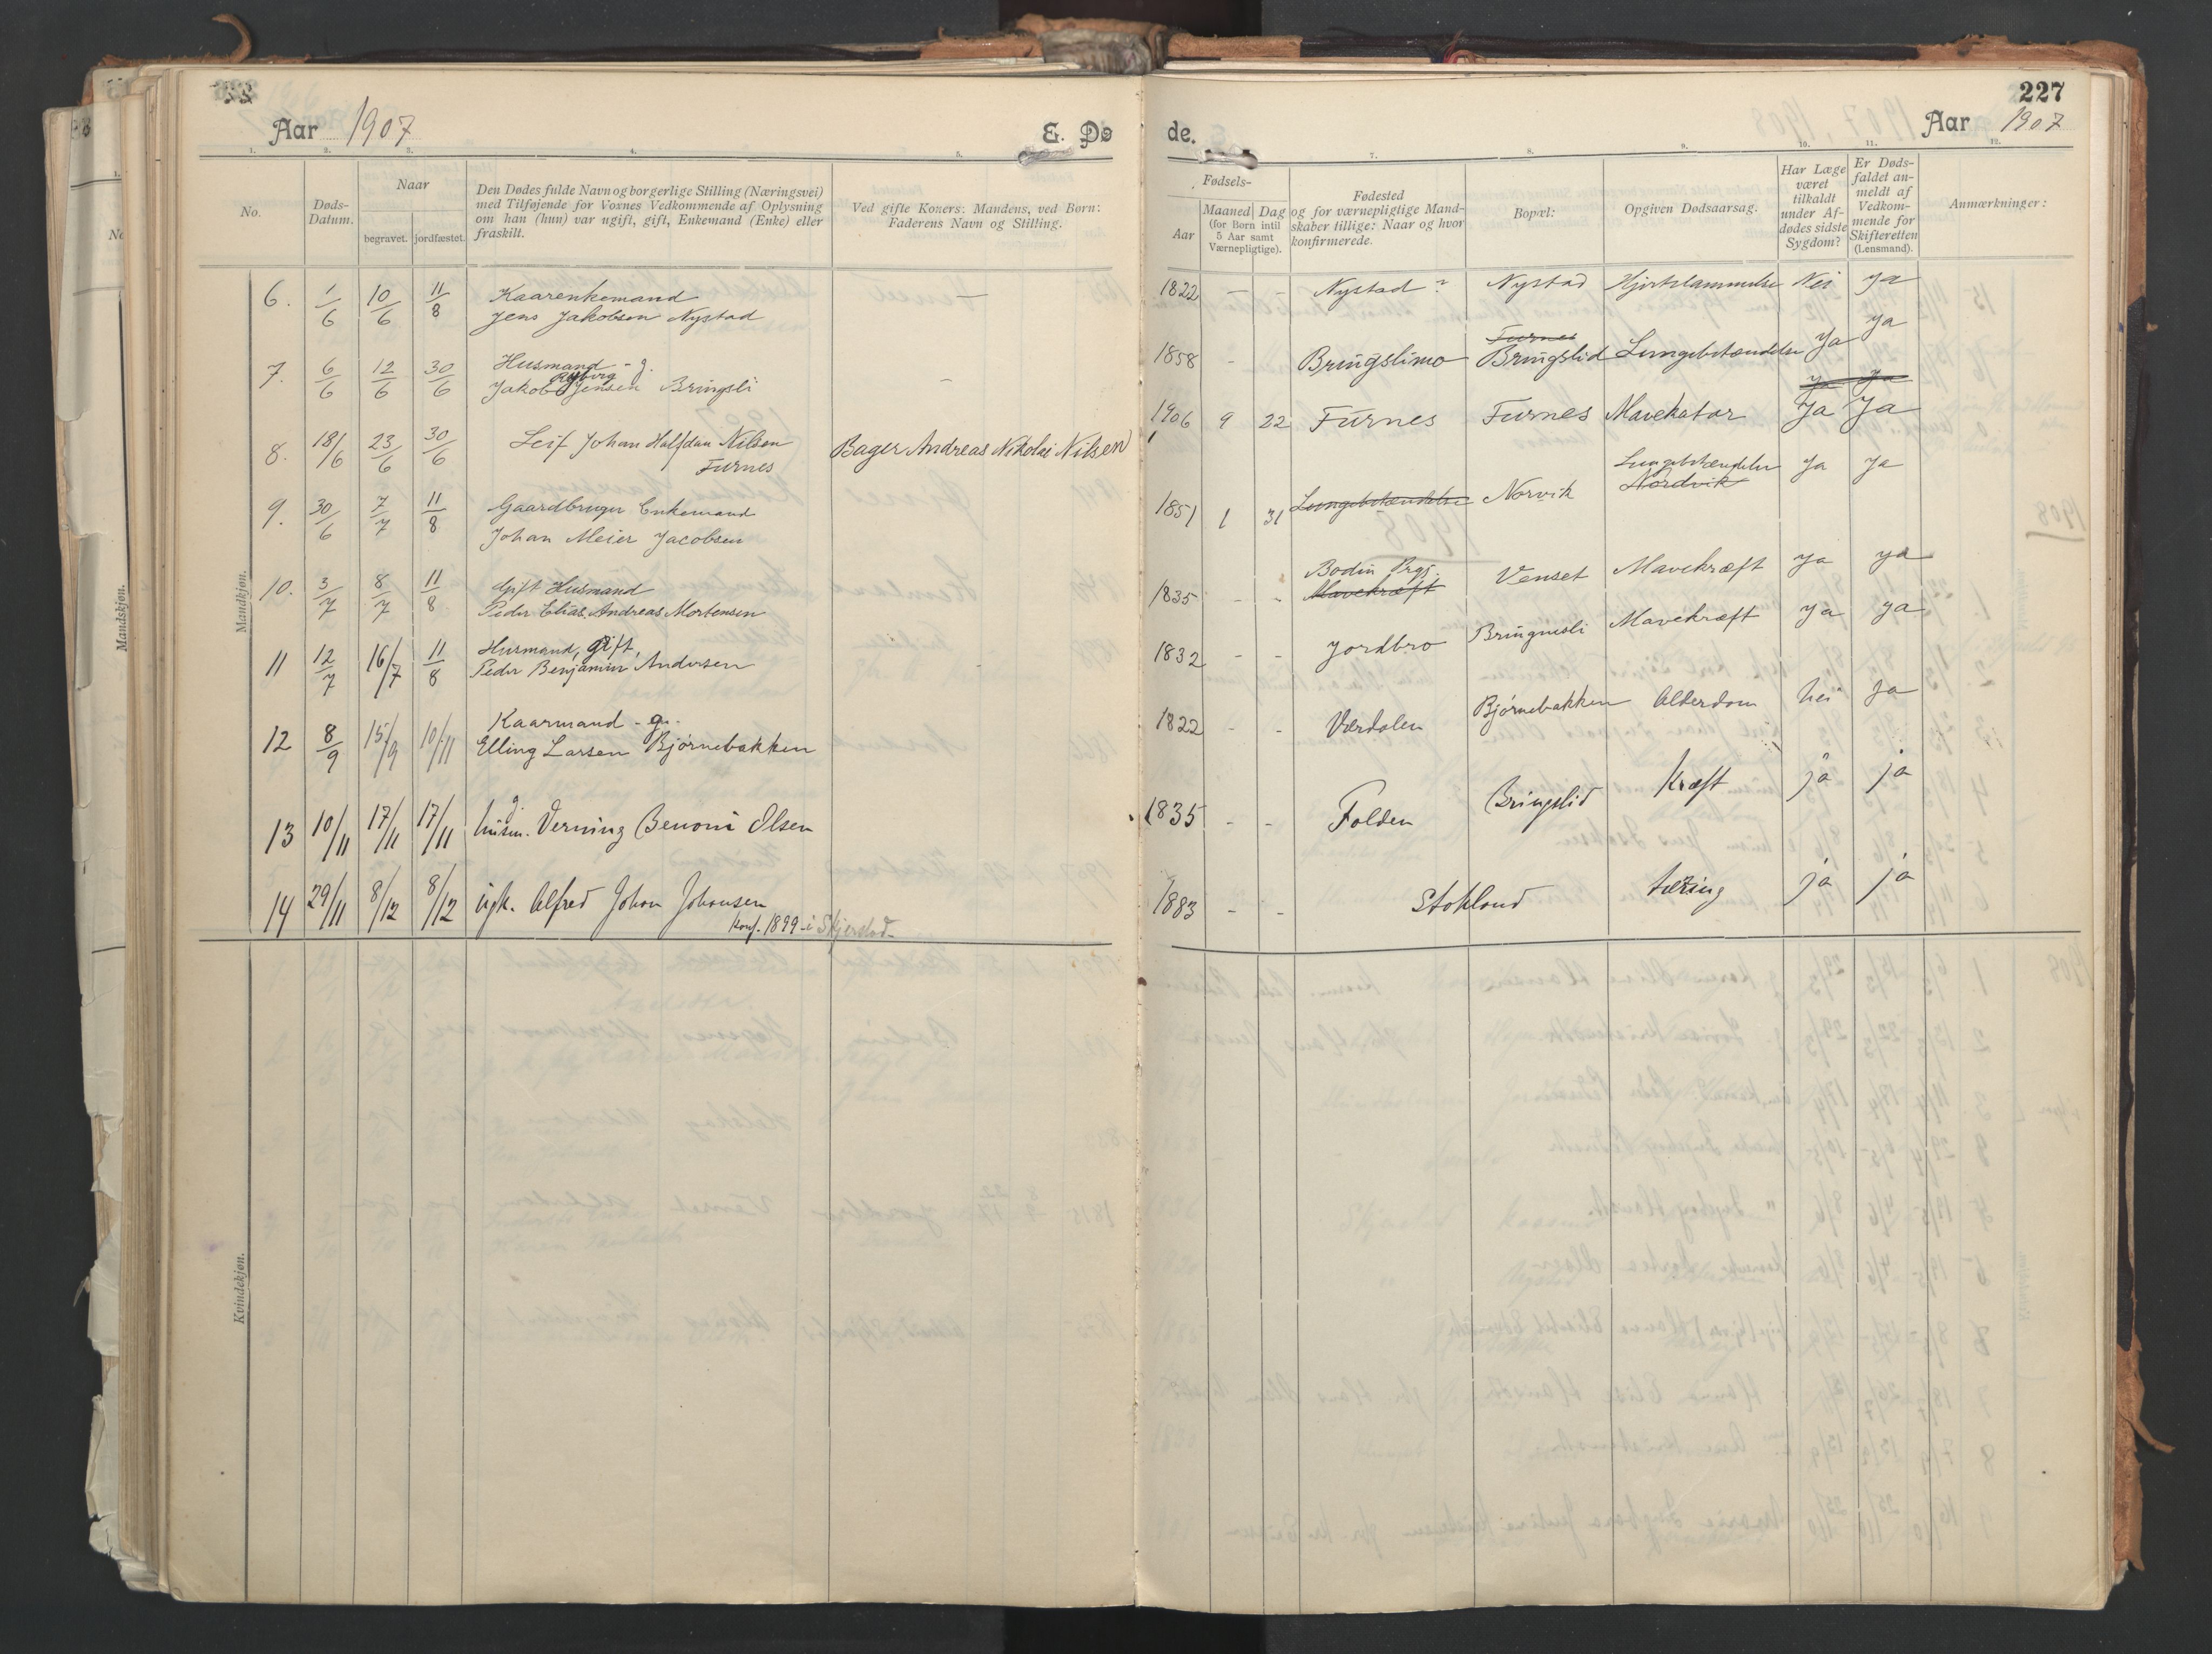 Aar 1907
E. Dø
No.
Døds-
Datum.
Naar
begravet.
jordfæstet.
Den Dødes fulde Navn og borgerlige Stilling (Næringsvei)
med Tilføjende for Voxnes Vedkommende af Oplysning
om han (hun) var ugift, gift, Enkemand (Enke) eller
fraskilt.
Ved gifte Koner: Mandens, ved Børn:
Faderens Navn og Stilling.
Mandkjøn.
6. 1/6 10/6 11/8 Kaarenkemand
Jens Jakobsen Nystad —
7. 6/6 12/6 30/6 Husmand - g.
Jakob Jensen Bringsli -
8. 18/6 23/6 30/6 Leif Johan Halfdan Nilsen Bager Andreas Nikolai Nilsen
Furnes
9. 30/6 7/7 11/8 Gaardbruger Enkemand
Johan Meier Jacobsen
10. 3/7 8/7 11/8 Gift Husmand
Peder Elias Andreas Mortensen
11 12/7 16/7 11/8 Husmand, gift,
Peder Benjamin Andersen -
12 8/9 15/9 10/11 Kaarmand - g.
Elling Larsen Bjørnebakken
13 10/11 17/11 17/11 g.
husm. Verning Benoni Olsen
14 29/11 8/12 8/12 ugk. Alfred Johan Johansen
Konf. 1899 i Skjerstad
Kvindekjøn.
227
de.
Aar 1907
Fødsels-
Aar
Maaned Dag
(for Børn intil
5 Aar samt
Værnepligtige).
Fødested
og for værnepligtige Mand-
skaber tillige: Naar og hvor
konfirmerede.
Bopæl:
Opgiven Dødsaarsag.
Har Læge
været
tilkaldt
under Af-
dødes sidste
Sygdom?
Er Døds-
faldet an-
meldt af
Vedkom-
mende for
Skifteretten
(Lensmand).
Anmærkninger:
1822 — - Nystad ? Nystad Hjertelammelse Nei Ja
Furnes
1858 - Bringslimo Bringslid Lungebetændelse Ja Ja
Ja Ja
1906 9 22 Furnes Furnes Mavekatar Ja Ja
Lungebetændelse Ja Ja
1851 1 31 Lungebetændelse Norvik Nordvik
Bodin Prgj.
1835 - - Mavekræft Venset Mavekræft Ja Ja
1832 - - Jordbro Bringnesli Mavekræft Ja Ja
1822 - - Værdalen Bjørnebakken Alderdom Nei Ja
1835 - - Folden Bringslid Kræft ja ja
1883 - - Stokland tæring ja ja
Mandskjøn.